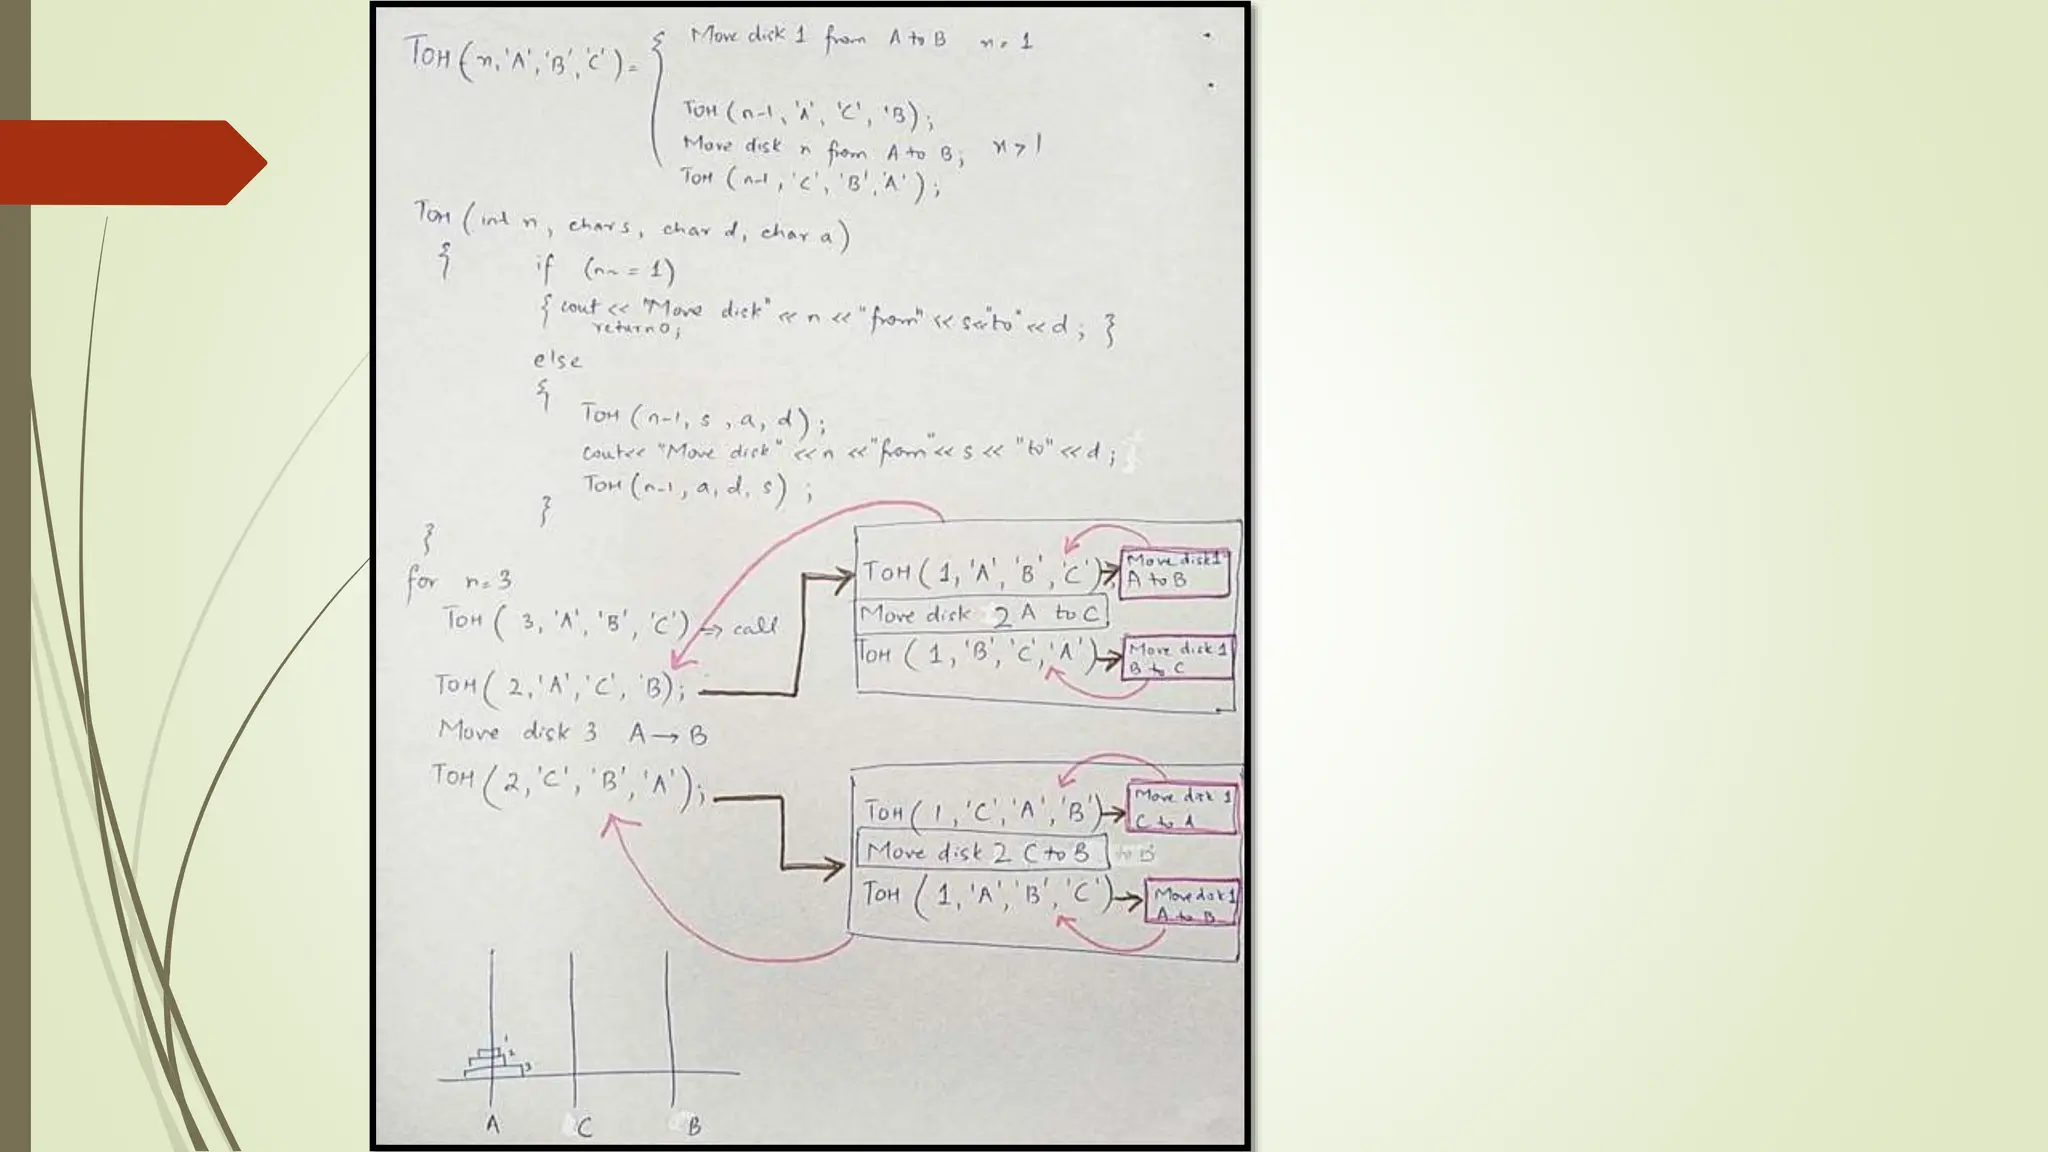 TOH (n, 'A', 'B', 'C') = {
Move disk 1 from A to B n = 1
TOH (n-1, 'A', 'C', 'B);
Move disk n from A to B; n > 1
TOH (n-1, 'C', 'B', 'A');
TOH (int n, char s, char d, char a)
{ if (n == 1)
{ cout << "Move disk" << n << "from" << s<<"to"<< d ; }
return 0;
else
{
TOH (n-1, s, a, d);
cout<< "Move disk" << n << "from" << s << "to" << d ;
TOH (n-1, a, d, s) ;
}
}
for n = 3
TOH ( 3, 'A', 'B', 'C') => call
TOH ( 2, 'A', 'C', 'B);
Move disk 3 A → B
TOH (2, 'C', 'B', 'A');
TOH ( 1, 'A', 'B', 'C');
Move disk 1
A to B
Move disk 2 A to C
TOH ( 1, 'B', 'C', 'A')
Move disk 1
B to C
TOH ( 1, 'C', 'A', 'B')
Move disk 1
C to A
Move disk 2 C to B to B
TOH ( 1, 'A', 'B', 'C')
Move disk 1
A to B
1
2
3
A C B